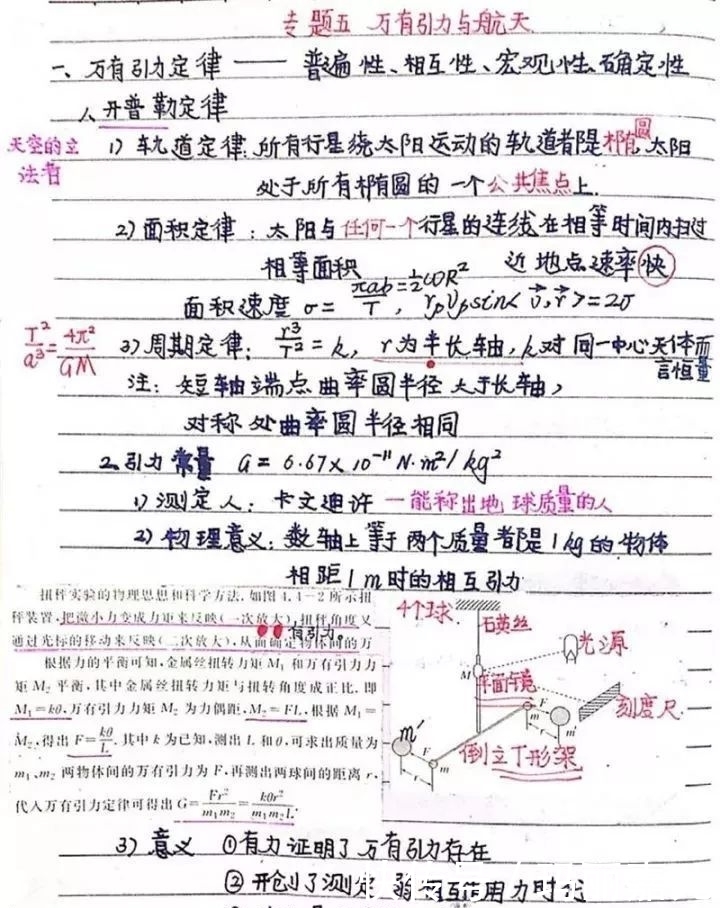 专题五 万有引力与航天
一、万有引力定律 —— 普遍性、相互性、宏观性、确定性
1、开普勒定律
天空的立法者
1) 轨道定律:所有行星绕太阳运动的轨道都是椭圆,太阳
处于所有椭圆的一个公共焦点上.
2) 面积定律:太阳与任何一个行星的连线在相等时间内扫过
相等面积 近地点速率快
面积速度 σ = πab/T = ½ωR², r_p v_p sin<v⃗,r⃗> = 2σ
T²/a³ = 4π²/GM
3) 周期定律: r³/T² = k, r为半长轴, k对同一中心天体而
言恒量
注:短轴端点曲率圆半径大于长轴,
对称处曲率圆半径相同
2、引力常量 G = 6.67×10⁻¹¹ N·m²/kg²
1) 测定人:卡文迪许 —能称出地球质量的人
2) 物理意义:数轴上等于两个质量都是1kg的物体
相距1m时的相互引力
扭秤实验的物理思想和科学方法.如图4.4-2所示扭
秤装置,把微小力变成力矩来反映(一次放大),扭秤角度又
通过光标的移动来反映(二次放大),从而确定物体间的万
有引力。
根据力的平衡可知,金属丝扭转力矩M₁和万有引力力
矩M₂平衡,其中金属丝扭转力矩与扭转角度成正比,即
M₁=kθ,万有引力力矩M₂为力偶距,M₂=FL,根据M₁=
M₂,得出F=kθ/L.其中k为已知,测出L和θ,可求出质量为
m₁、m₂两物体间的万有引力为F,再测出两球间的距离r,
代入万有引力定律可得出G=Fr²/m₁m₂=kθr²/m₁m₂L.
4个球.
石英丝
光源
M
平面镜
刻度尺.
m'
F
m
r
F
m
倒立丁形架
3) 意义 ①有力证明了万有引力存在
②开创了测定弱相互作用力时代